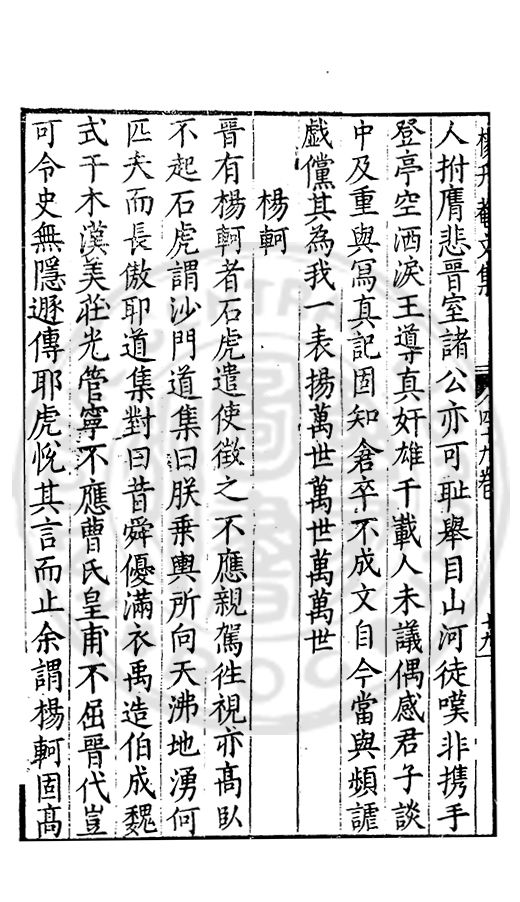 楊升菴文集 四十九卷
人拊膺悲晉室諸公亦可耻舉目山河徒嘆非携手
登亭空洒淚王導真奸雄千載人未議偶感君子談
中及重與冩真記固知倉卒不成文自今當與頻謔
戯儻其為我一表揚萬世萬世萬萬世
楊軻
晉有楊軻者石虎遣使徵之不應親駕徃視亦高臥
不起石虎謂沙門道集曰朕乗輿所向天沸地湧何
匹夫而長傲耶道集對曰昔舜優滿衣禹造伯成魏
式干木漢美莊光管寧不應曹氏皇甫不屈晉代豈
可令史無隱遯傳耶虎恱其言而止余謂楊軻固高